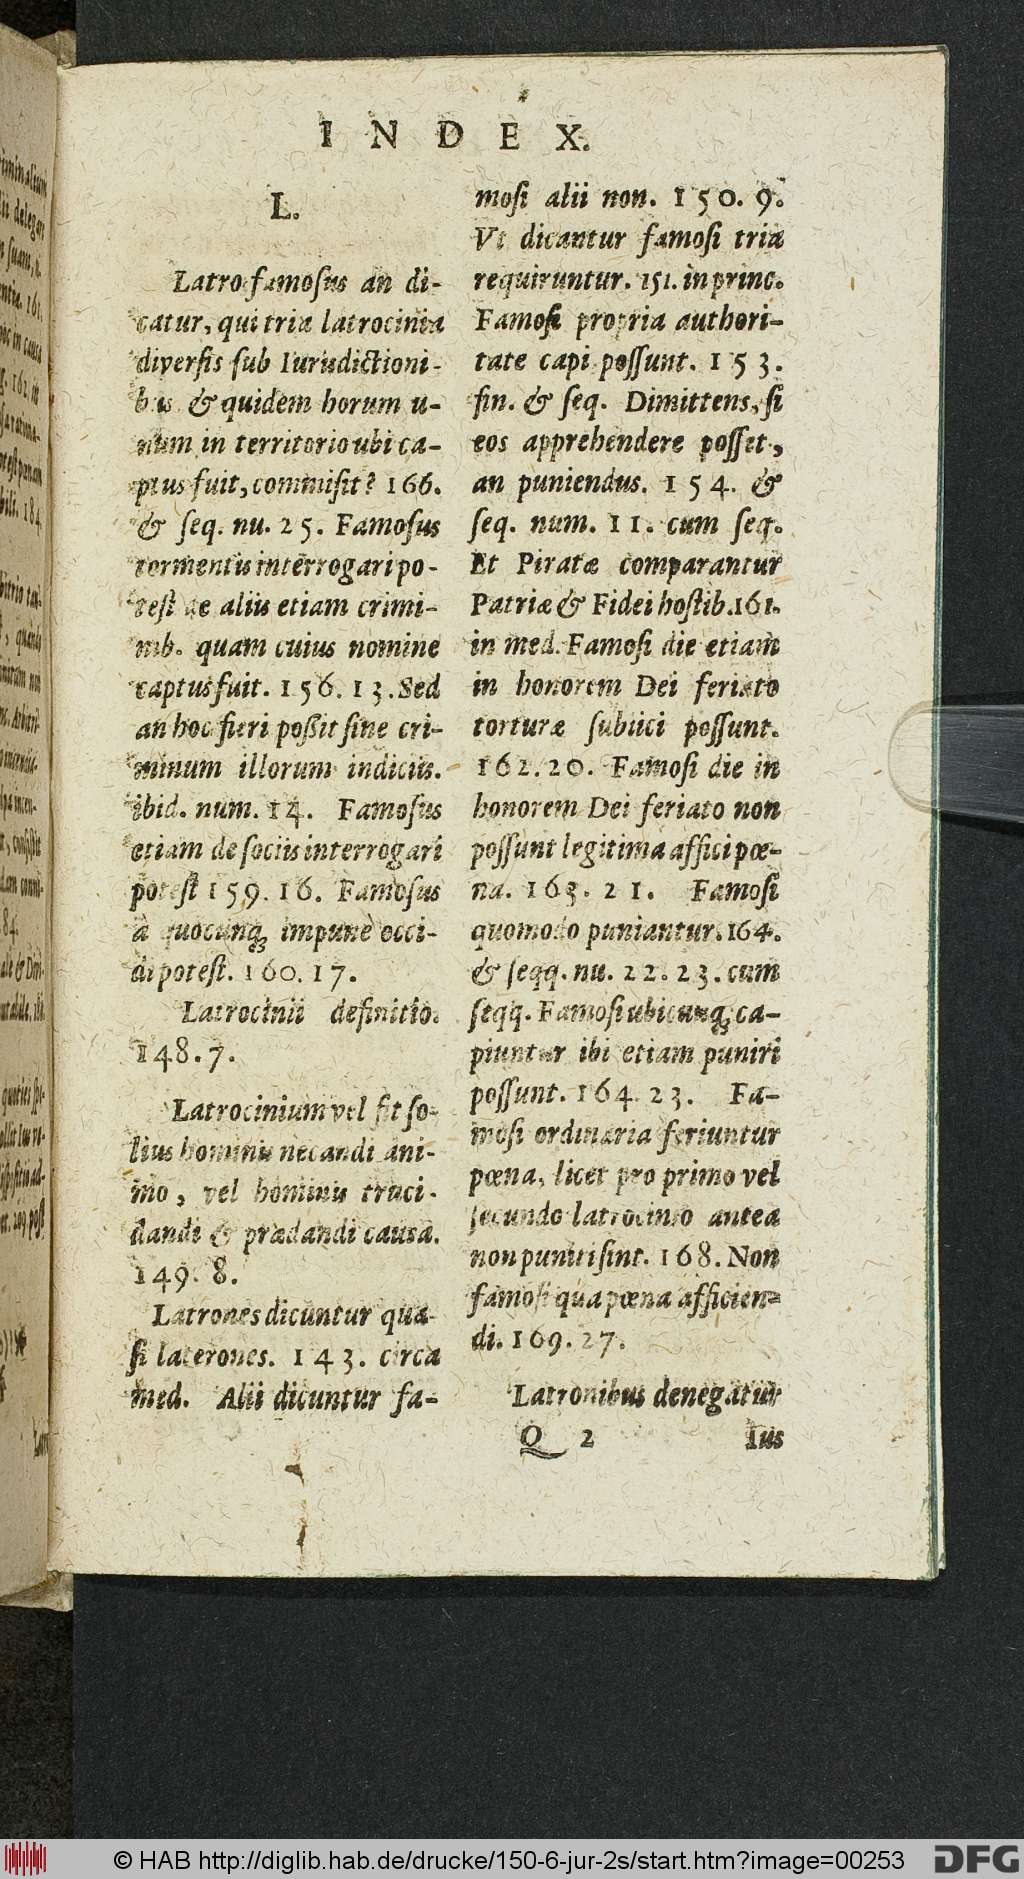 INDEX.
L.
Latro famoſus an di-
catur, qui tria latrocinia
diverſis ſub Iurisdictioni-
bus & quidem horum u-
num in territorio ubi ca-
ptus fuit, commiſit? 166.
& ſeq. nu. 25. Famoſus
tormentis interrogari po-
teſt de aliis etiam crimi-
nib. quam cuius nomine
captus fuit. 156. 13. Sed
an hoc fieri poßit ſine cri-
minum illorum indiciis.
ibid. num. 14. Famoſus
etiam de ſociis interrogari
poteſt 159. 16. Famoſus
à quocunq; impunè occi-
di poteſt. 160. 17.
Latrocinii definitio.
148. 7.
Latrocinium vel fit ſo-
lius hominis necandi ani-
mo, vel hominis truci-
dandi & prædandi causa.
149. 8.
Latrones dicuntur qua-
ſi laterones. 143. circa
med. Alii dicuntur fa-
moſi alii non. 150. 9.
Vt dicantur famoſi tria
requiruntur. 151. in princ.
Famoſi propria authori-
tate capi poſſunt. 153.
fin. & ſeq. Dimittens, ſi
eos apprehendere poſſet,
an puniendus. 154. &
ſeq. num. 11. cum ſeq.
Et Piratæ comparantur
Patriæ & Fidei hoſtib. 161.
in med. Famoſi die etiam
in honorem Dei feriato
torturæ ſubiici poſſunt.
162. 20. Famoſi die in
honorem Dei feriato non
poſſunt legitima affici pœ-
na. 163. 21. Famoſi
quomodo puniantur. 164.
& ſeqq. nu. 22. 23. cum
ſeqq. Famoſi ubicunq; ca-
piuntur ibi etiam puniri
poſſunt. 164 23. Fa-
moſi ordinaria feriuntur
pœna, licet pro primo vel
ſecundo latrocinio antea
non puniti ſint. 168. Non
famoſi qua pœna afficien-
di. 169. 27.
Latronibus denegatur
Q 2 Ius
© HAB http://diglib.hab.de/drucke/150-6-jur-2s/start.htm?image=00253
DFG